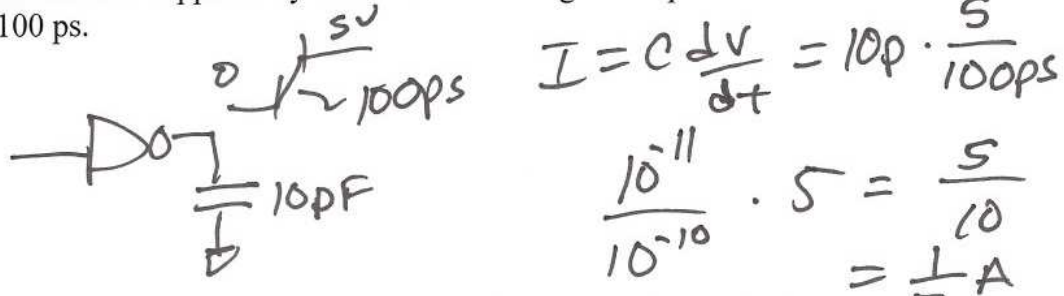 100 ps.
0 5V
~ 100ps
10pF
I = C dV/dt = 10p · 5/100ps
10^-11/10^-10 · 5 = 5/10
= 1/ A